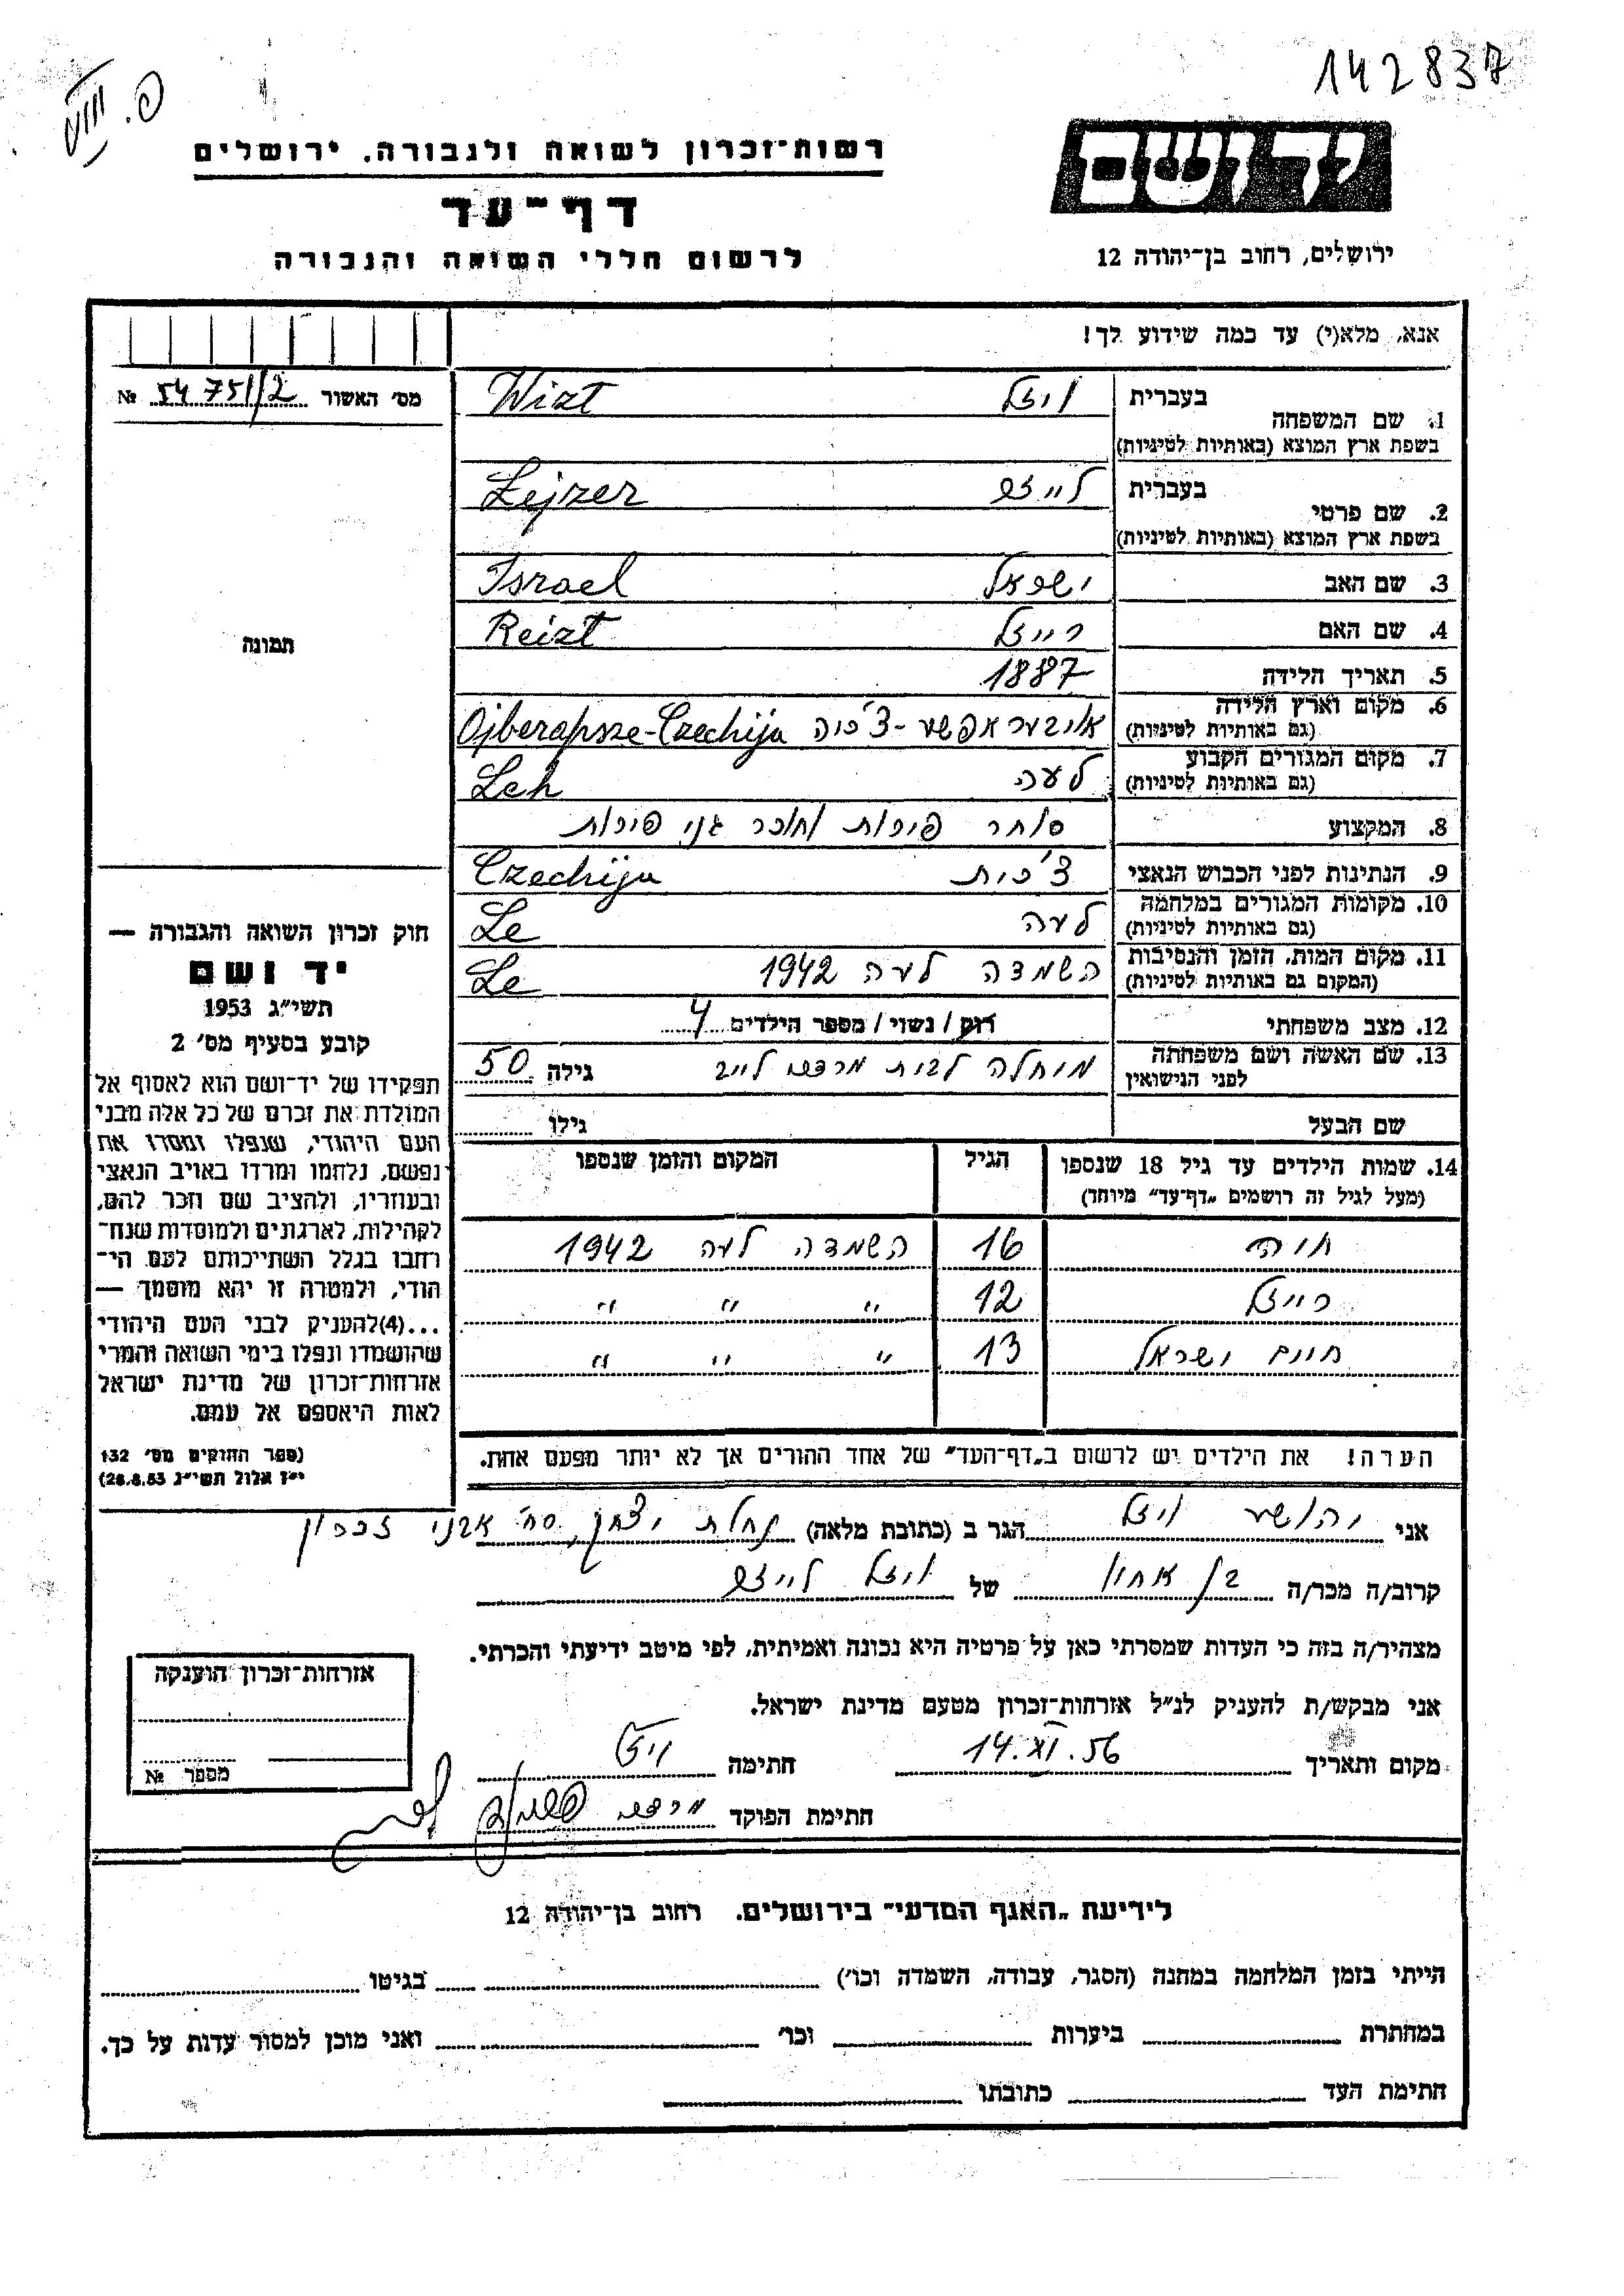 142837
רשות־זכרון לשואה ולגבורה, ירושלים
יד ושם
דף־עד
לרשום חללי השואה והגבורה
ירושלים, רחוב בן־יהודה 12
אנא, מלא(י) עד כמה שידוע לך!
מס׳ האשור 54751/2 №
בעברית ויזל Wizt
1. שם המשפחה
בשפת ארץ המוצא (באותיות לטיניות)
בעברית לייזר Lejzer
2. שם פרטי
בשפת ארץ המוצא (באותיות לטיניות)
3. שם האב ישראל Israel
4. שם האם רייזל Reizt
5. תאריך הלידה 1887
6. מקום וארץ הלידה
(גם באותיות לטיניות) אויבעראפשע - צ׳כיה Ojberapsze-Czechija
7. מקום המגורים הקבוע
(גם באותיות לטיניות) לעה Leh
8. המקצוע סוחר פירות וחוכר גני פירות
9. הנתינות לפני הכבוש הנאצי צ׳כית Czechija
10. מקומות המגורים במלחמה
(גם באותיות לטיניות) לעה Le
11. מקום המות, הזמן והנסיבות
(המקום גם באותיות לטיניות) השמדה לעה 1942 Le
12. מצב משפחתי רוק/ נשוי/ מספר הילדים 4
13. שם האשה ושם משפחתה
לפני הנישואין לבית לייב גילה 50
שם הבעל גילו
14. שמות הילדים עד גיל 18 שנספו הגיל המקום והזמן שנספו
(מעל לגיל זה רושמים „דף־עד״ מיוחד)
חוה 16 השמדה לעה 1942
רייזל 12 " " "
חיים ישראל 13 " " "
הערה! את הילדים יש לרשום ב„דף־העד״ של אחד ההורים אך לא יותר מפעם אחת.
תמונה
חוק זכרון השואה והגבורה —
יד ושם
תשי״ג 1953
קובע בסעיף מס׳ 2
תפקידו של יד־ושם הוא לאסוף אל
המולדת את זכרם של כל אלה מבני
העם היהודי, שנפלו ומסרו את
נפשם, נלחמו ומרדו באויב הנאצי
ובעוזריו, ולהציב שם וזכר להם,
לקהילות, לארגונים ולמוסדות שנח־
רחבו בגלל השתייכותם לעם הי־
הודי, ולמטרה זו יהא מוסמך —
...(4)להעניק לבני העם היהודי
שהושמדו ונפלו בימי השואה והמרי
אזרחות־זכרון של מדינת ישראל
לאות היאספם אל עמם.
(ספר החוקים מס׳ 132
י״ז אלול תשי״ג 28.8.53)
אני יהושע ויזל הגר ב (כתובת מלאה) נחלת יצחק, רח׳ אבני זכרון
קרוב/ה מכר/ה בן אחיו של ויזל לייזר
מצהיר/ה בזה כי העדות שמסרתי כאן על פרטיה היא נכונה ואמיתית, לפי מיטב ידיעתי והכרתי.
אני מבקש/ת להעניק לנ״ל אזרחות־זכרון מטעם מדינת ישראל.
מקום ותאריך 14.XI.56 חתימה ויזל
חתימת הפוקד
אזרחות־זכרון הוענקה
מספר №
לידיעת „האגף המדעי״ בירושלים. רחוב בן־יהודה 12
הייתי בזמן המלחמה במחנה (הסגר, עבודה, השמדה וכו׳) בגיטו
במחתרת ביערות וכו׳ ואני מוכן למסור עדות על כך.
חתימת העד כתובתו